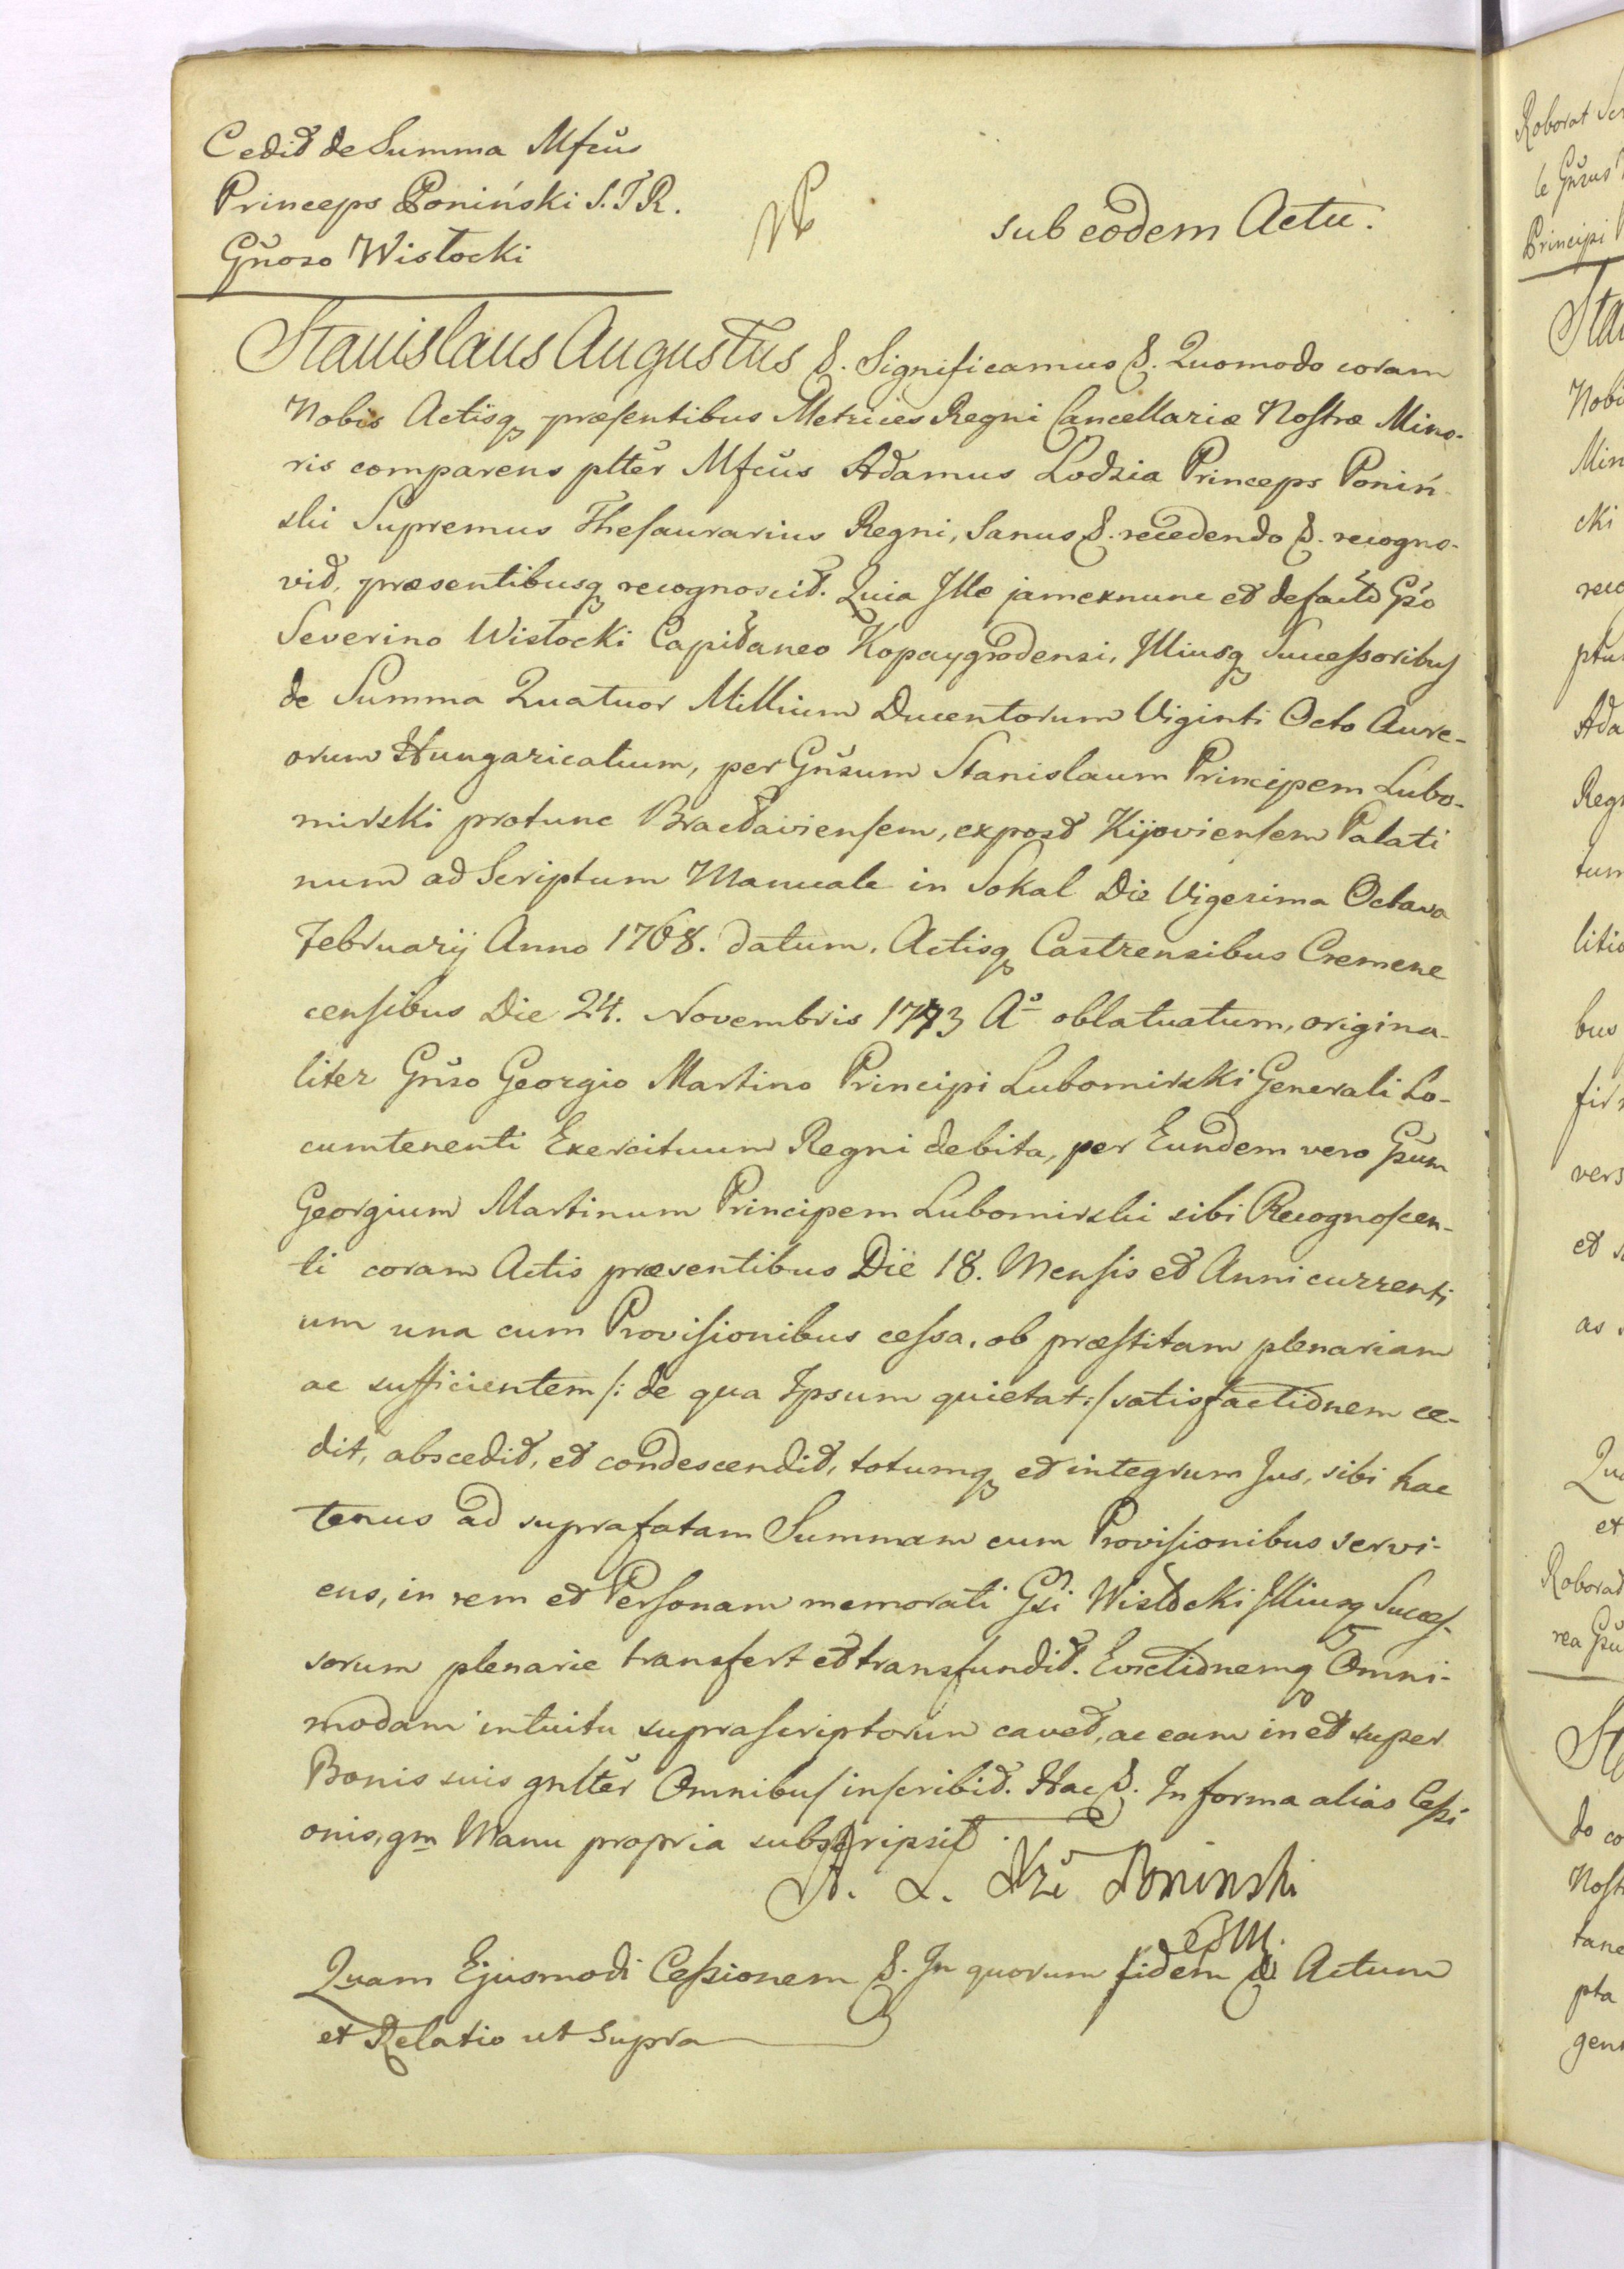 Cedit de Summa Mfcus
Princeps Poniński S.T.R.
Gnoso Wisłocki
sub eodem Actu.
Stanislaus Augustus &. Significamus &. Quomodo coram
Nobis Actisq præsentibus Metrices Regni Cancellariæ Nostræ Mino-
ris comparens plter Mfcus Adamus Lodzia Princeps Poniń-
ski Supremus Thesaurarius Regni, Sanus &. recedendo &. recogno-
vit, præsentibusq recognoscit. Quia Ille jamexnunc et defacto Gso
Severino Wisłocki Capitaneo Kopaygrodensi, Illiusq Successoribus
de Summa Quatuor Millium Ducentorum Viginti Octo Aure-
orum Hungaricalium, per Gnsum Stanislaum Principem Lubo-
mirski protunc Bracłaviensem, expost Kijoviensem Palati
num ad Scriptum Manuale in Sokal Die Vigesima Octava
February Anno 1768. datum, Actisq Castrensibus Cremene
censibus Die 24. Novembris 1773 Aº oblatuatum, origina-
liter Gnso Georgio Martino Principi Lubomirski Generali Lo-
cumtenenti Exercituum Regni debita, per Eundem vero Gsum
Georgium Martinum Principem Lubomirski sibi Recognoscen-
ti coram Actis præsentibus Die 18. Mensis et Anni currenti
um una cum Provisionibus cessa, ob præstitam plenariam
ac sufficientem /: de qua Ipsum quietat :/ satisfactionem ce-
dit, abscedit, et condescendit, totumq et integrum Jus, sibi hac
tenus ad suprafatam Summam cum Provisionibus servi-
ens, in rem et Personam memorati Gsi Wisłocki Illiusq Succes-
sorum plenarie transfert et transfundit. Evictionemq Omni-
modam intuitu suprascriptorum cavet, ac eam in et super
Bonis suis gnlter Omnibus inscribit. Hac &. In forma alias Cessi
onis, qm Manu propria subscripsit.
A. L. Xże Poninski
Quam Ejusmodi Cessionem &. In quorum fidem &. Actum
et Relatio ut Supra